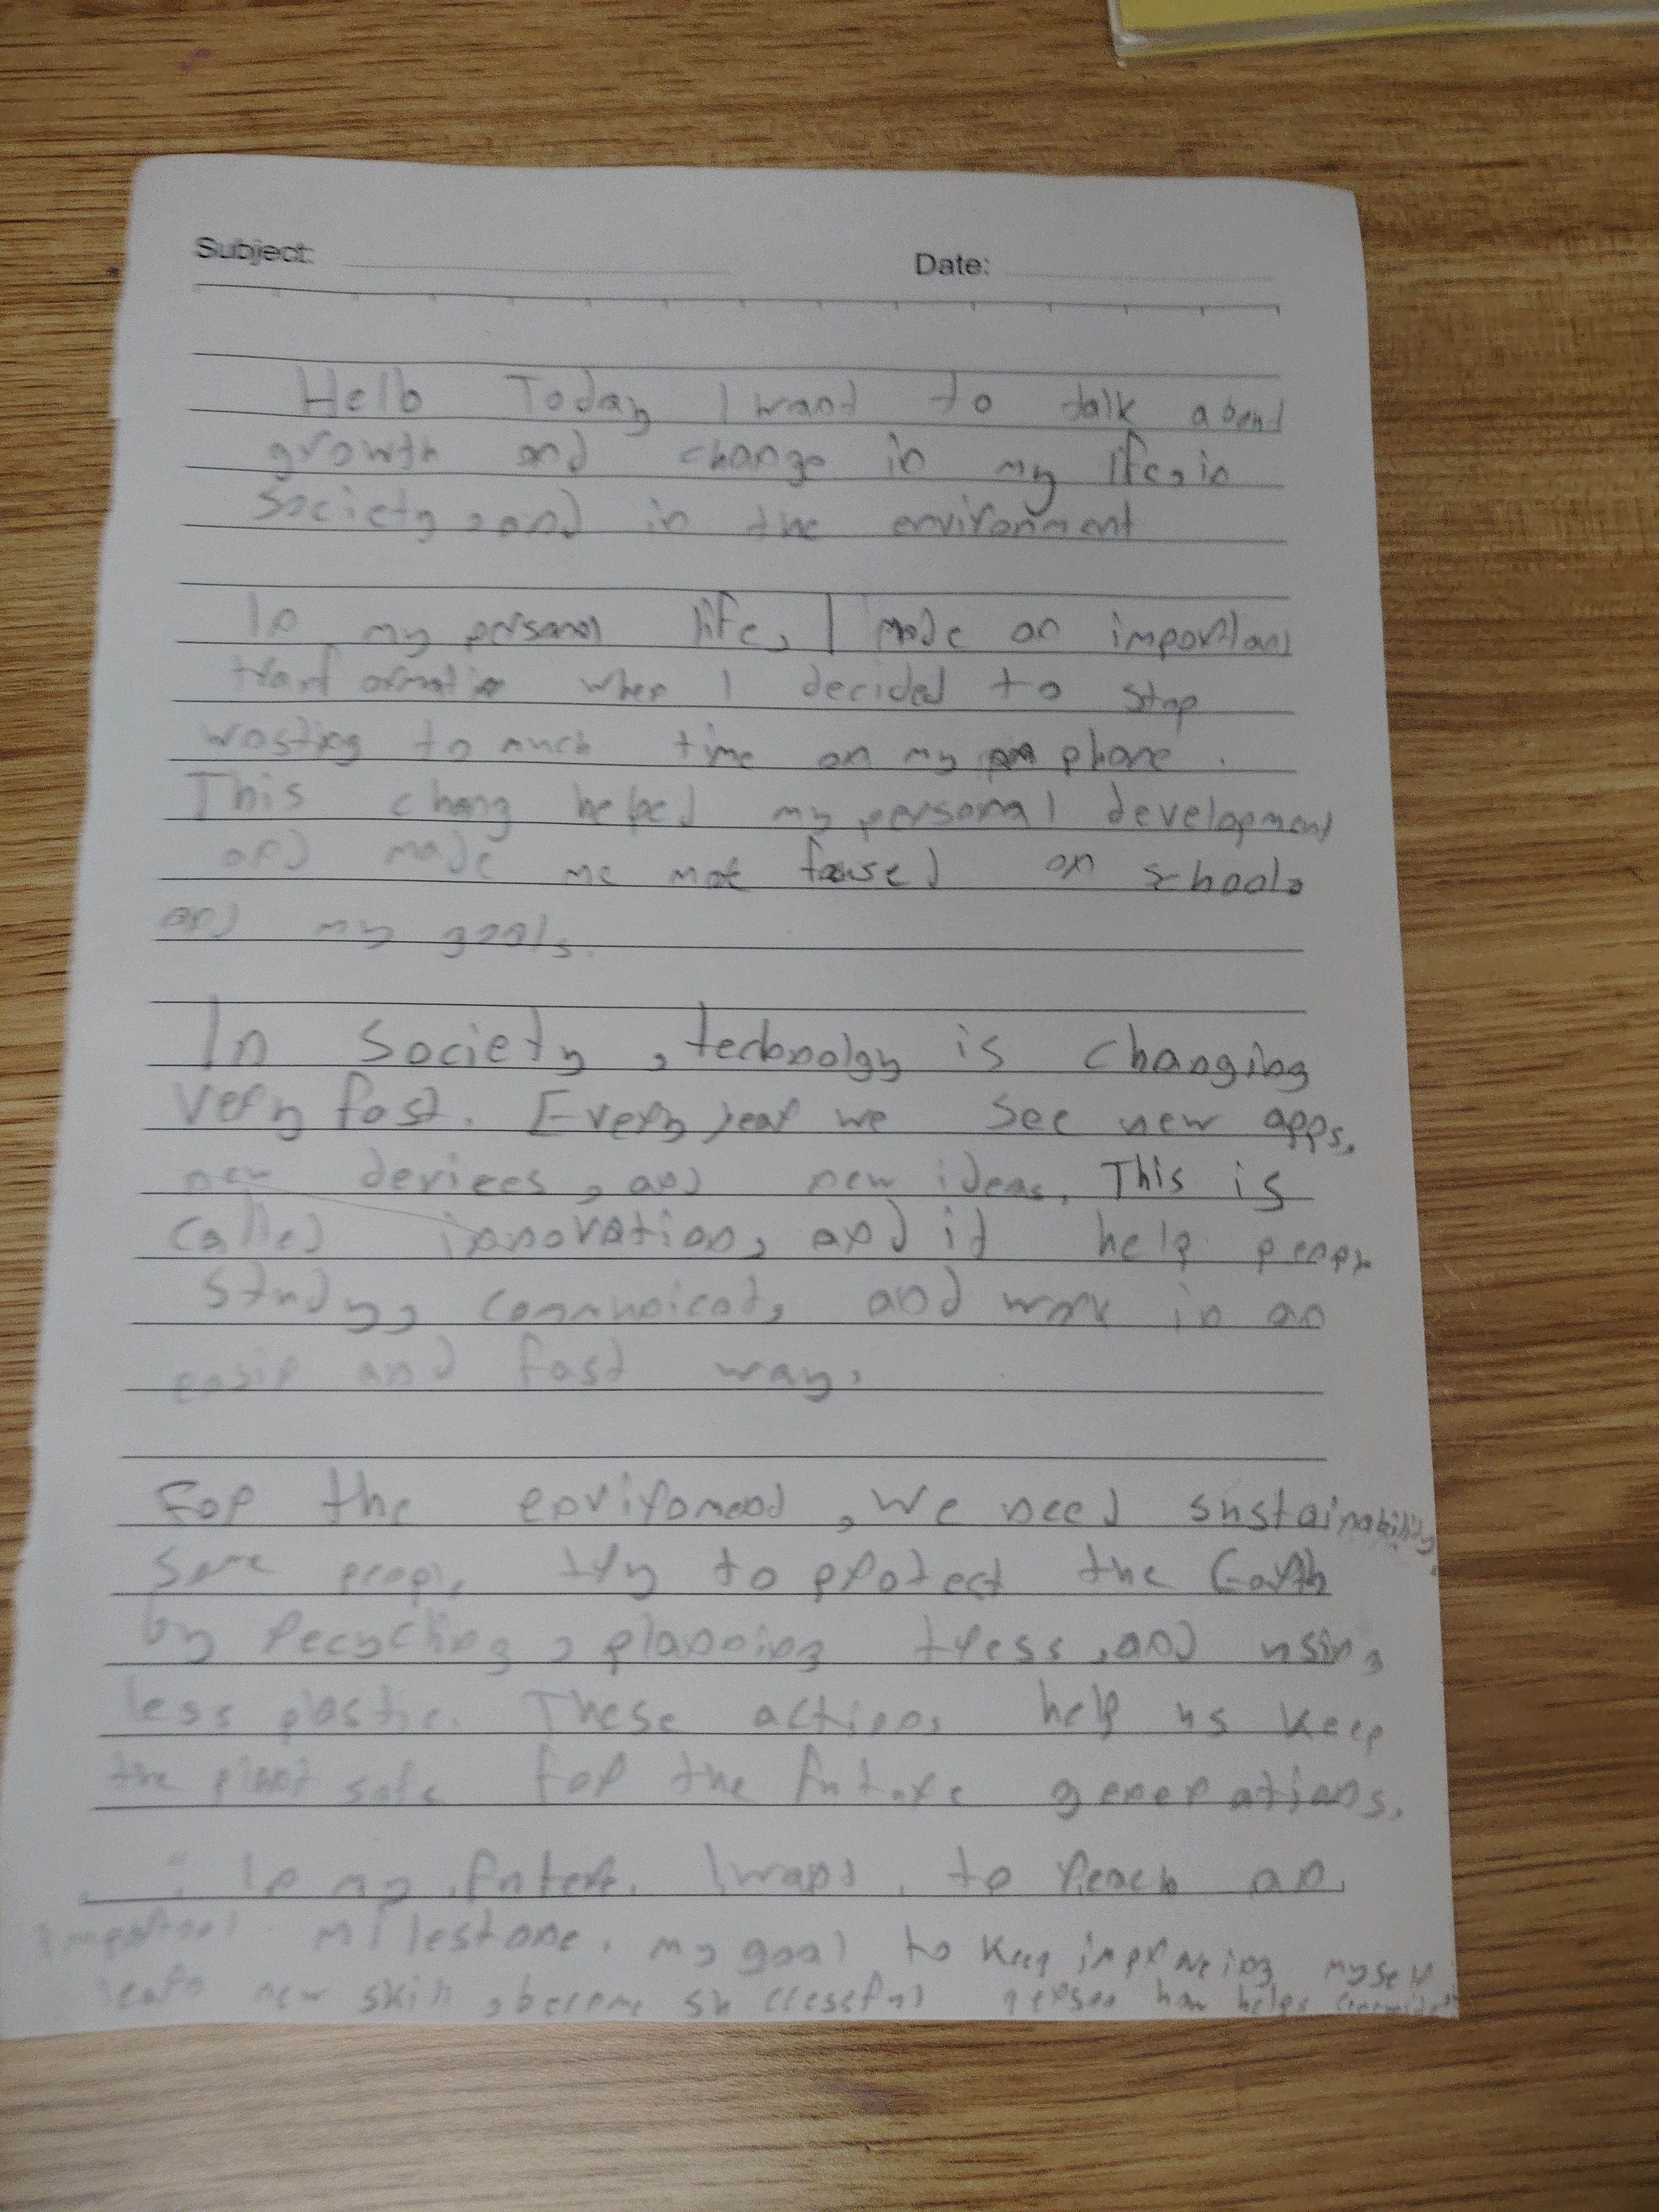 Subject: Date:
Hello Today I want to talk abent
growth and change in my life, in
Society, and in the environment
In my personal life, I made an important
tranformation when I decided to stop
wasting to much time on my phone.
This chang helped my personal development
and made me mot foused on schools
and my goals.
In Society, technolgy is changing
very fast. Every year we see new apps,
new devices, and new ideas. This is
called innovation, and it help peopl
study, communicat, and work in an
easir and fast way.
For the enviroment, we need sustainability.
Some peopl try to protect the Earth
by recycling, planning tress, and using
less plastic. These actions help us keep
the plant safe for the future generations.
In my future, I want to reach an
important milestone. my goal to keep improveing myself
learn new skill, become successful person how helps